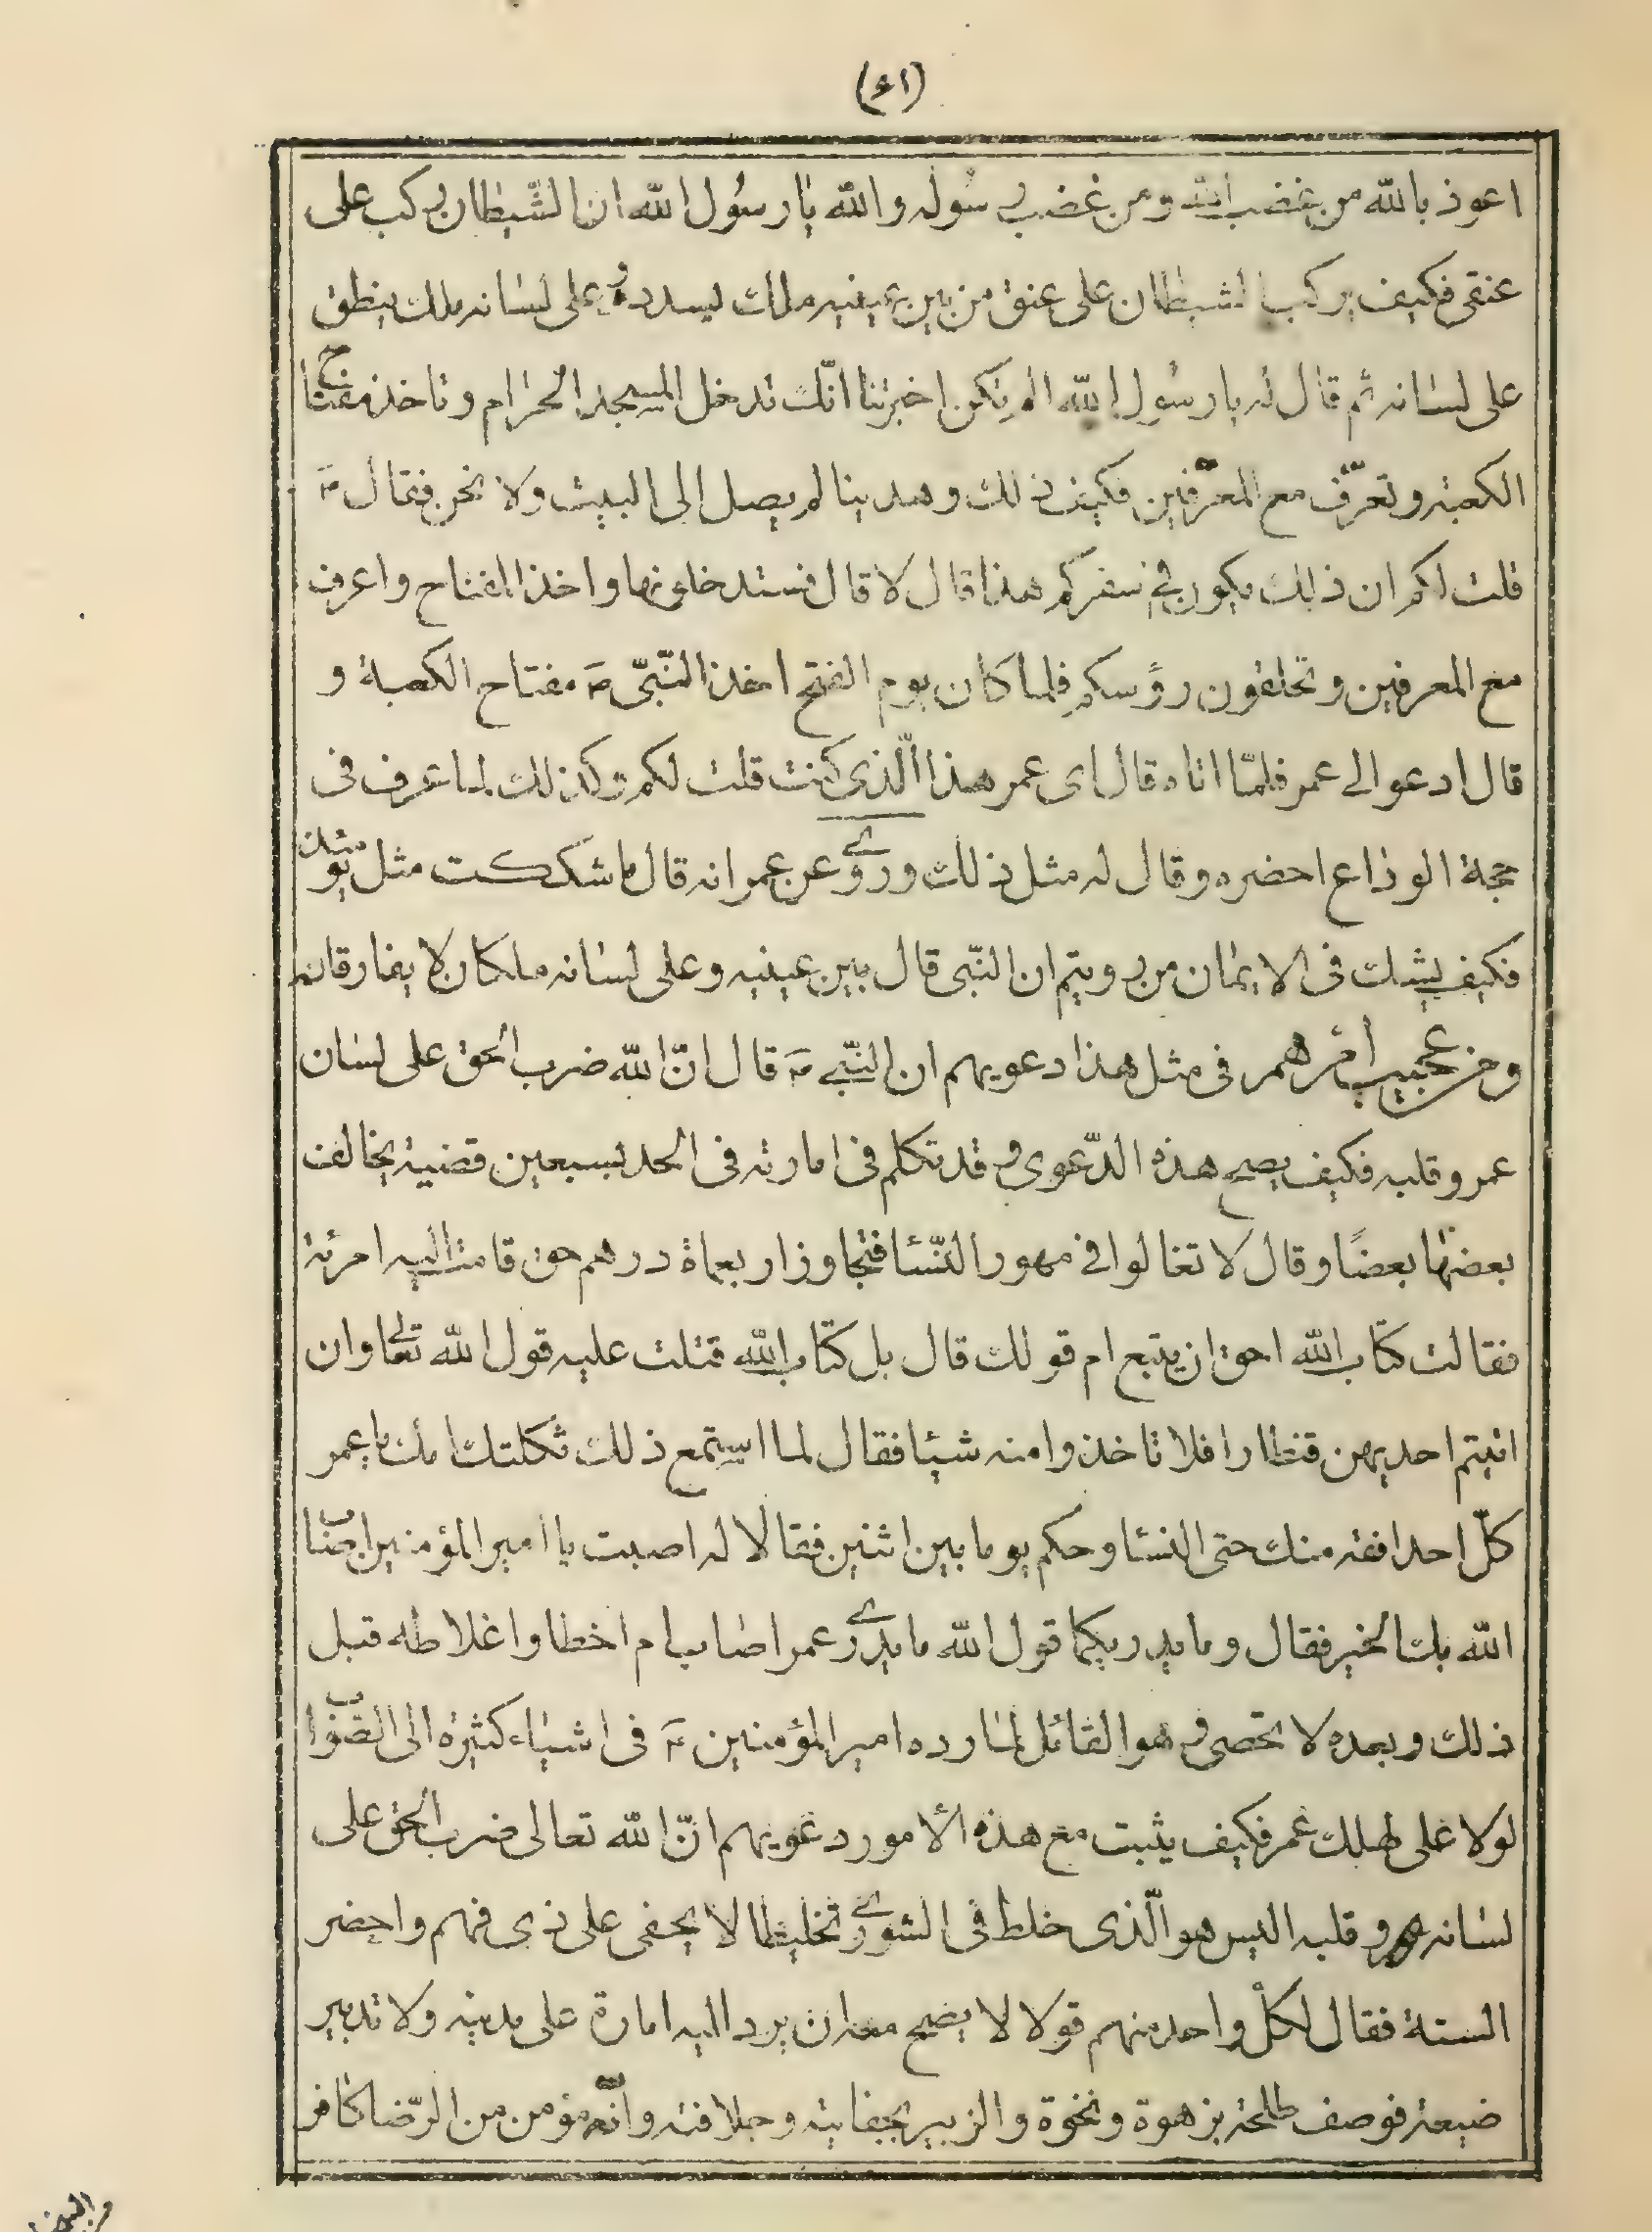 (٤١)
اعوذ بالله من غضب الله ومن غضب رسوله والله يا رسول الله ان الشيطان ركب على
عنقى فكيف يركب الشيطان على عنق من بين عينيه ملك يسدده وعلى لسانه ملك ينطق
على لسانه ثم قال له يا رسول الله الم تكن اخبرتنا انّك تدخل المسجد الحرام وتاخذ مفتاح
الكعبة وتعرّف مع المعرّفين فكيف ذلك وهدينا لم يصل الى البيت ولا نحن فقال ص
قلت لكم ان ذلك يكون فى سفركم هذا قال لا قال فستدخلونها واخذ المفتاح واعرف
مع المعرفين وتحلقون رؤسكم فلما كان يوم الفتح اخذ النّبىّ ص مفتاح الكعبة و
قال ادعوا لى عمر فلمّا اتاه قال اى عمر هذا الّذى كنت قلت لكم وكذلك لما عرف فى
حجة الوداع احضره وقال له مثل ذلك وروى عن عمر انه قال ما شككت مثل يومئذ
فكيف يشك فى الايمان من رويتم ان النّبى قال بين عينيه وعلى لسانه ملكان لا يفارقانه
ومن عجيب امرهم فى مثل هذا دعويهم ان النّبى ص قال انّ الله ضرب الحق على لسان
عمر وقلبه فكيف يصح هذه الدّعوى وقد تكلم فى امارته فى الحد بسبعين قضية يخالف
بعضها بعضًا وقال لا تغالوا فى مهور النّسا فتجاوز اربعماة درهم حتى قامت اليه امرئة
فقالت كتاب الله احق ان يتبع ام قولك قال بل كتاب الله فتلت عليه قول الله تعالى وان
اتيتم احديهن قنطارا فلا تاخذوا منه شيئا فقال لما استمع ذلك ثكلتك امك يا عمر
كلّ احد افقه منك حتى النسا وحكم يوما بين اثنين فقالا له اصبت يا امير المؤمنين اصاب
الله بك الخير فقال وما يدريكما قول الله ما يدرى عمر اصاب ام اخطا واغلاطه قبل
ذلك وبعده لا تحصى وهو القائل لما رده امير المؤمنين ع فى اشياء كثيرة الى الصواب
لولا على لهلك عمر فكيف يثبت مع هذه الامور دعويهم انّ الله تعالى ضرب الحق على
لسانه وقلبه اليس هو الّذى خلط فى الشورى تخليطا لا يخفى على ذى فهم واحضر
الستة فقال لكل واحد منهم قولا لا يصح معه ان يرد اليه امارة على مدينه ولا تدبير
ضيعة فوصف طلحة بزهوة ونخوة والزبير بجفايه وجلافته وانّه مؤمن من الرّضا كافر